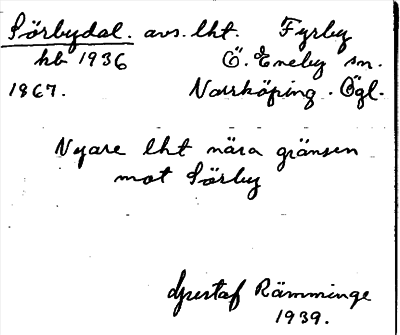 Sörbydal. avs. lht. Fyrby
hb 1936 Ö. Eneby sn.
1867. Norrköping. Ögl.
Nyare lht nära gränsen
mot Sörby
Gustaf Rämminge
1939.